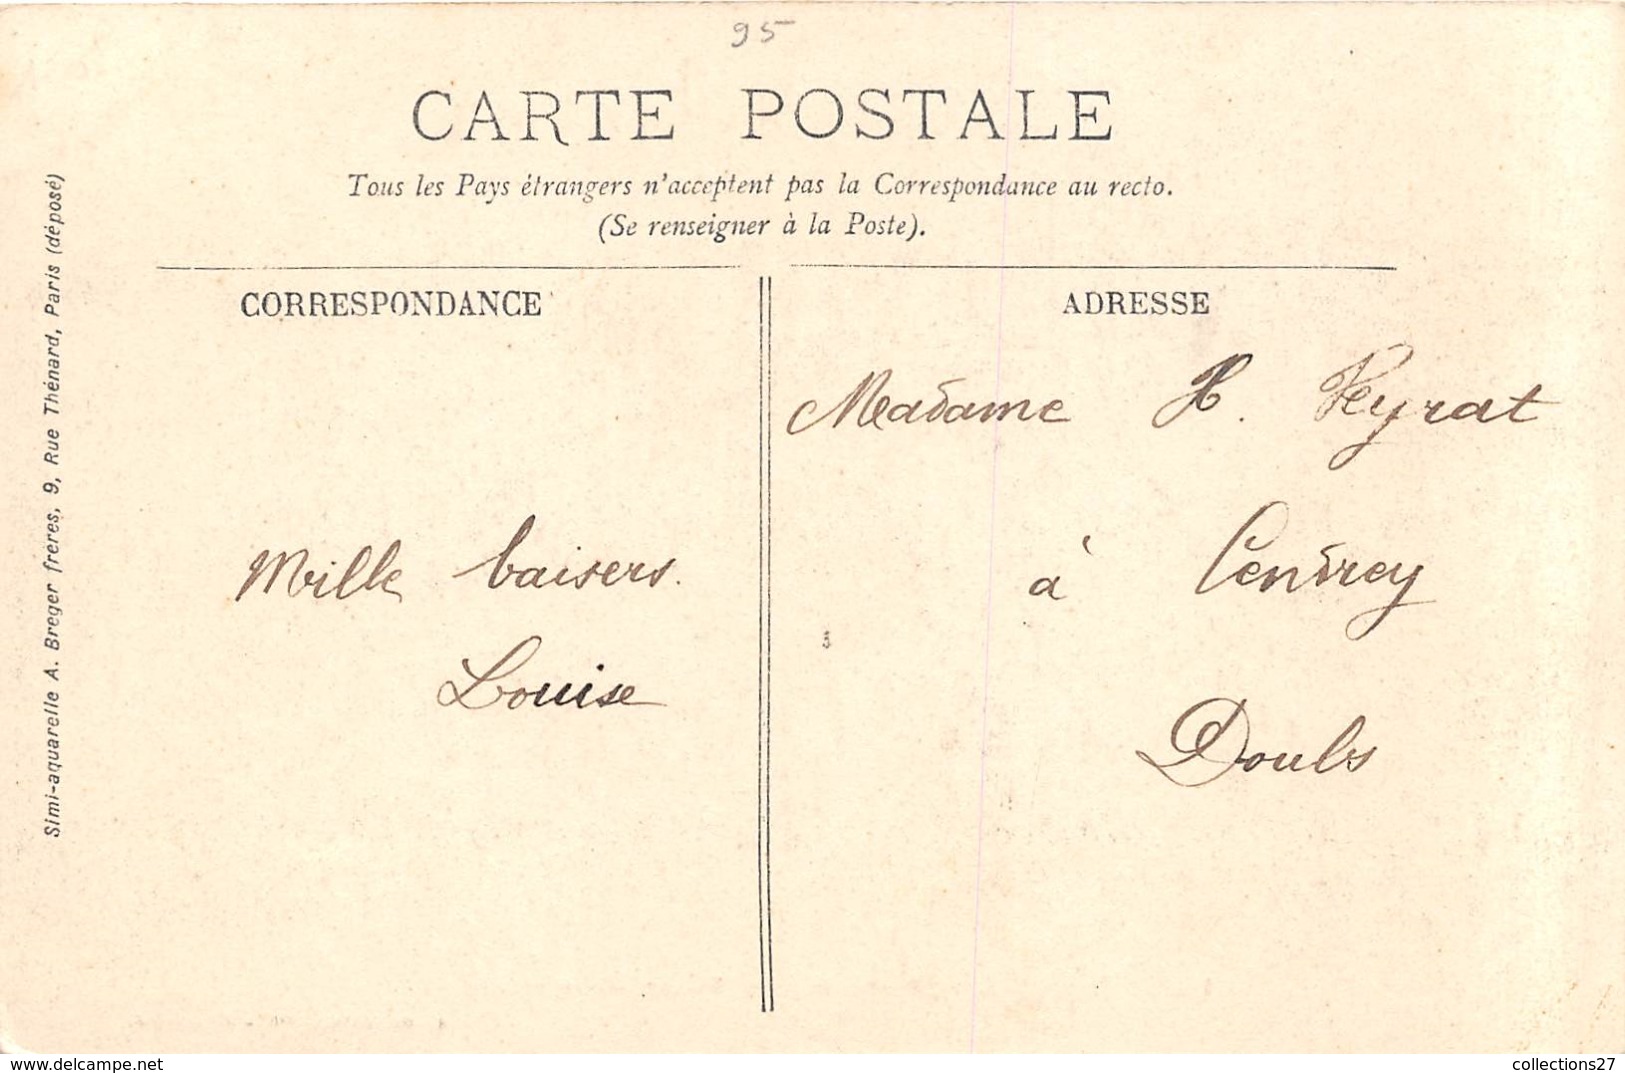 95
CARTE POSTALE
Tous les Pays étrangers n'acceptent pas la Correspondance au recto.
(Se renseigner à la Poste).
CORRESPONDANCE
Mille baisers.
Louise
ADRESSE
Madame H. Veyrat
à Cendrey
Doubs
Simi-aquarelle A. Breger freres, 9, Rue Thénard, Paris (déposé)
www.delcampe.net
collections27